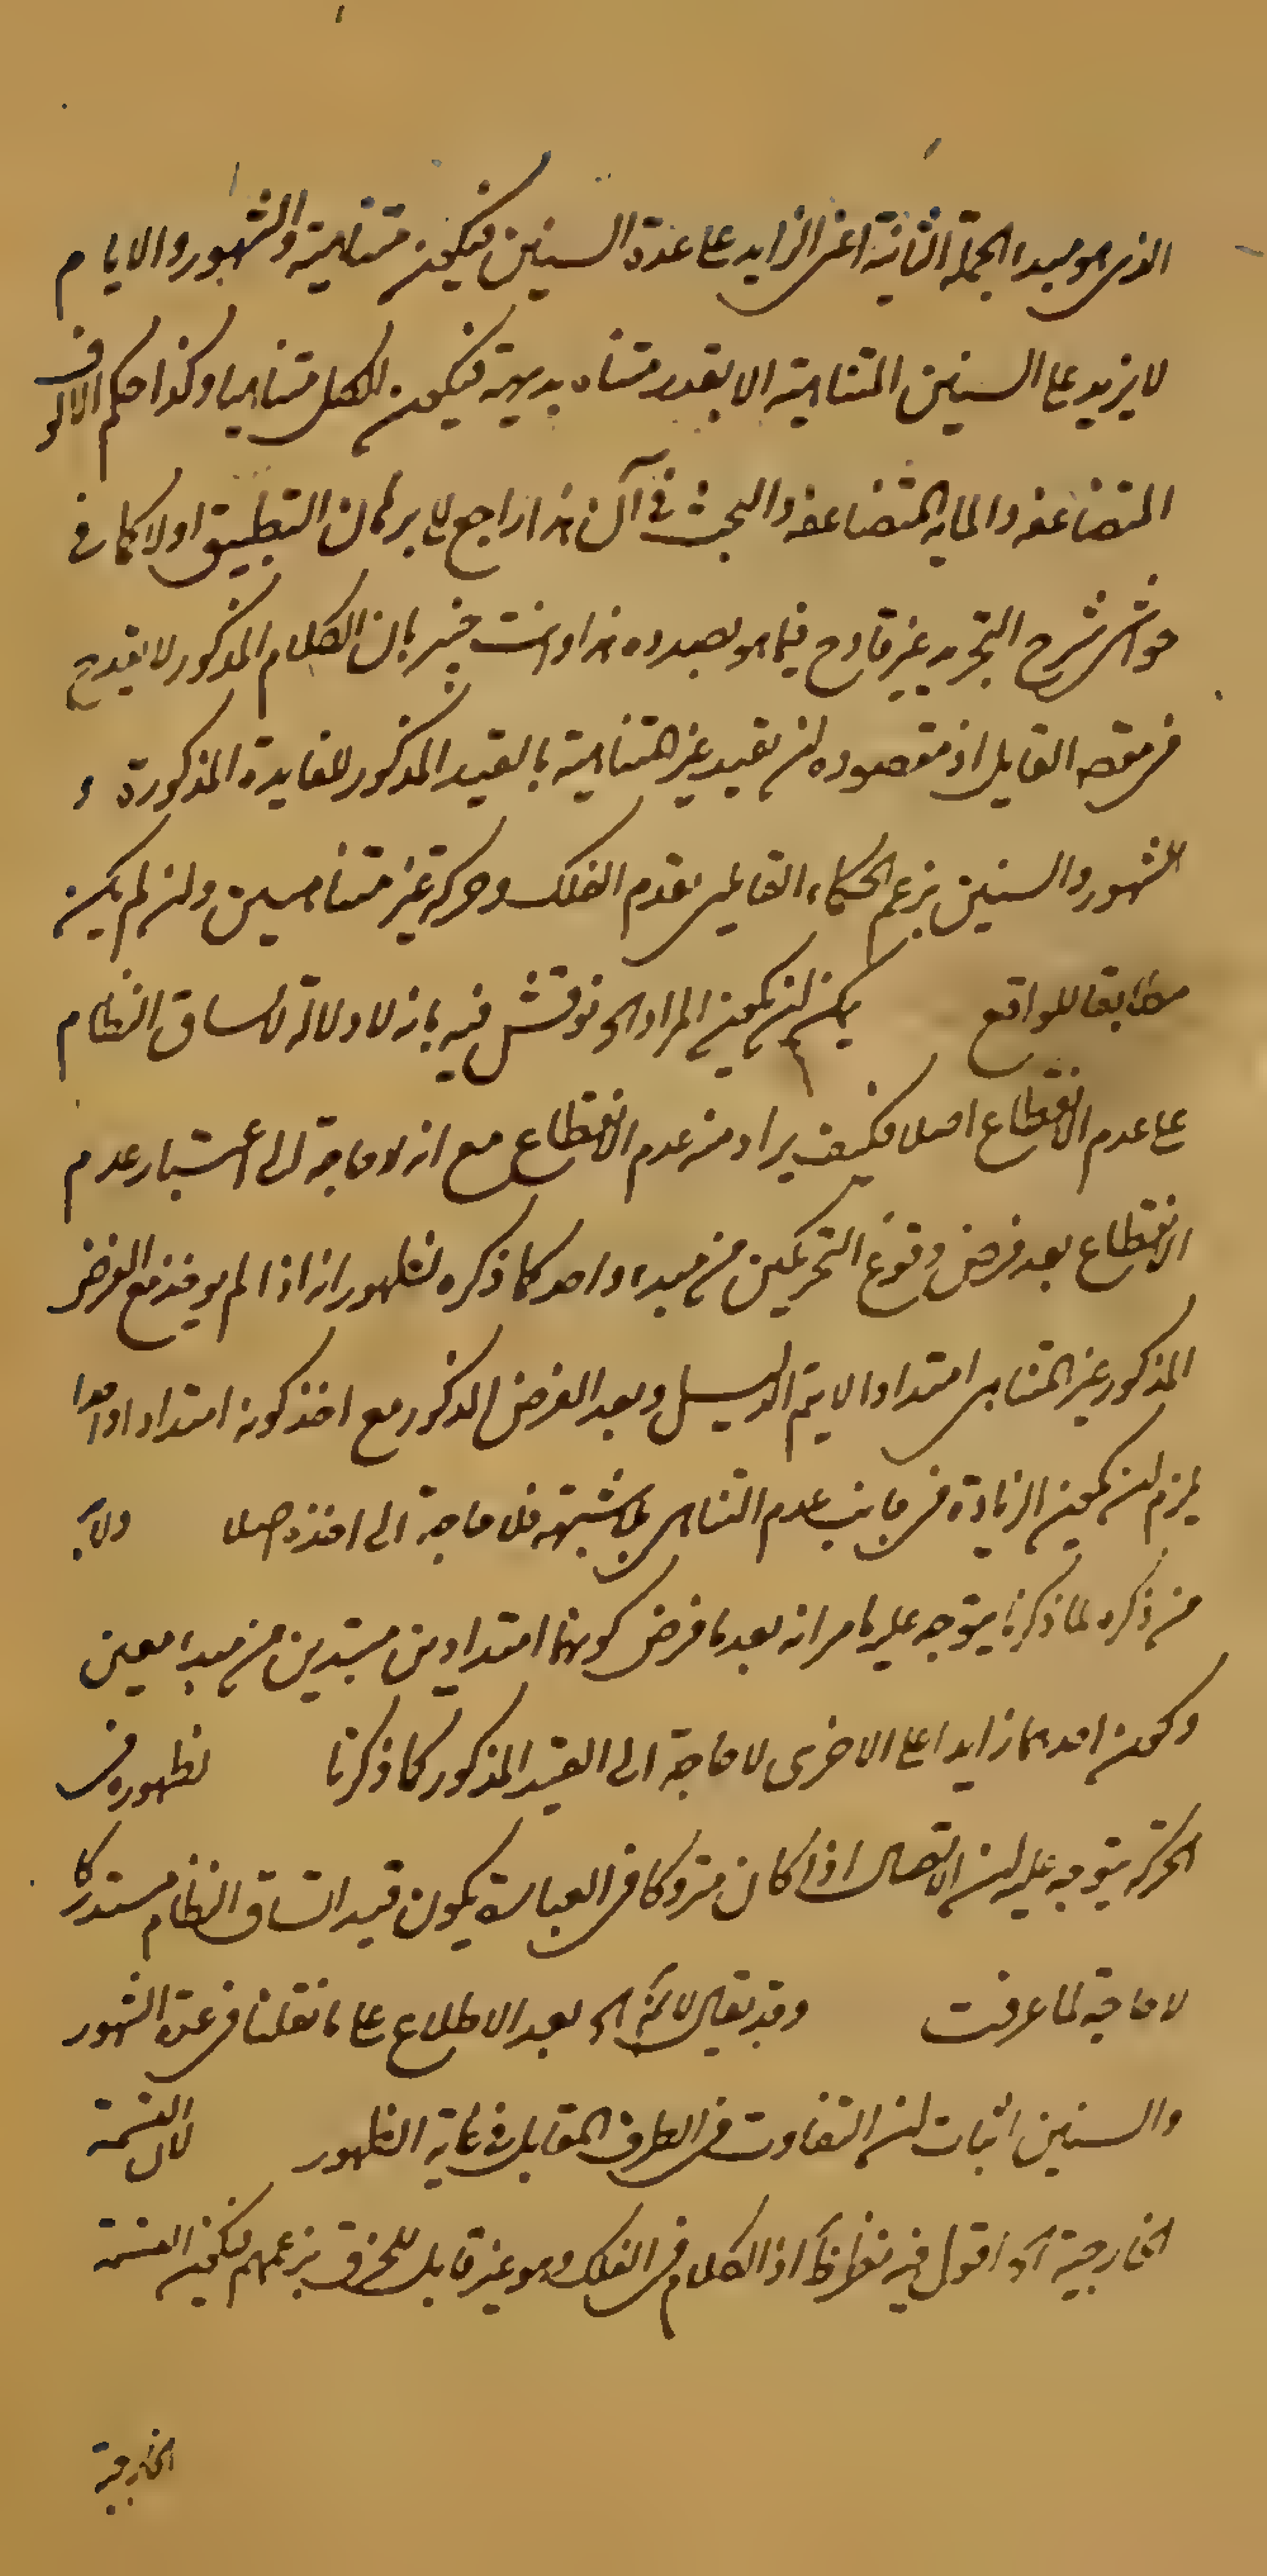 الذى هو مبداء الجملة الثانية اعنى الزايد على عدة السنين فيكون متناهية والشهور والايام
لا يزيد على السنين المتناهية الا بقدر متناه بديهة فيكون الكل متناهيا وكذا حكم الالوف
المتضاعفه والمايه المتضاعفه والبحث فى ان هذا راجع الى برهان التطبيق اولا كما فى
حواشى شرح التجريد غير قادح فيما هو بصدده هذا وانت خبير بان الكلام المذكور لا يقدح
فى مقصد القايل اذ مقصوده ان تقييد غير المتناهية بالقيد المذكور للفايدة المذكورة و
الشهور والسنين بزعم الحكماء القايلين بقدم الفلك وحركته غير متناهيين وان لم يكن
مطابقا للواقع يمكن ان يكون المراد الخ نوقش فيه بانه لا دلالة لاتساق النظام
على عدم الانقطاع اصلا فكيف يراد منه عدم الانقطاع مع انه لا حاجة الى اعتبار عدم
الانقطاع بعد فرض وقوع التحريكين من مبداء واحد كما ذكره لظهور انه اذا لم يوخذ مع الفرض
المذكور غير المتناهى امتدادا لا يتم الدليل وبعد الفرض المذكور مع اخذ كونه امتدادا واحدا
يلزم ان يكون الزيادة فى جانب عدم التناهى بلا شبهة فلا حاجة الى اخذه اصلا ولا بد
من ذكره لما ذكرنا يتوجه عليه ما مر انه بعد ما فرض كونهما امتدادين مبتدين من مبداء معين
وكون احدهما زايدا على الاخرى لا حاجة الى القيد المذكور كما ذكرنا لظهوره فى
الحركة يتوجه عليه ان الاتصال اذا كان متروكا فى العبارة يكون قيد اتساق النظام مستدركا
لا حاجة لما عرفت وقد يقال لا نم الخ بعد الاطلاع على ما نقلنا فى عدة الشهور
والسنين اثبات ان التفاوت فى الطرف المقابل فى غاية الظهور لان القسمة
الخارجية اه اقول فيه نظر اذ الكلام فى الفلك وهو غير قابل للخرق بزعمهم فكون القسمة
الخارجية